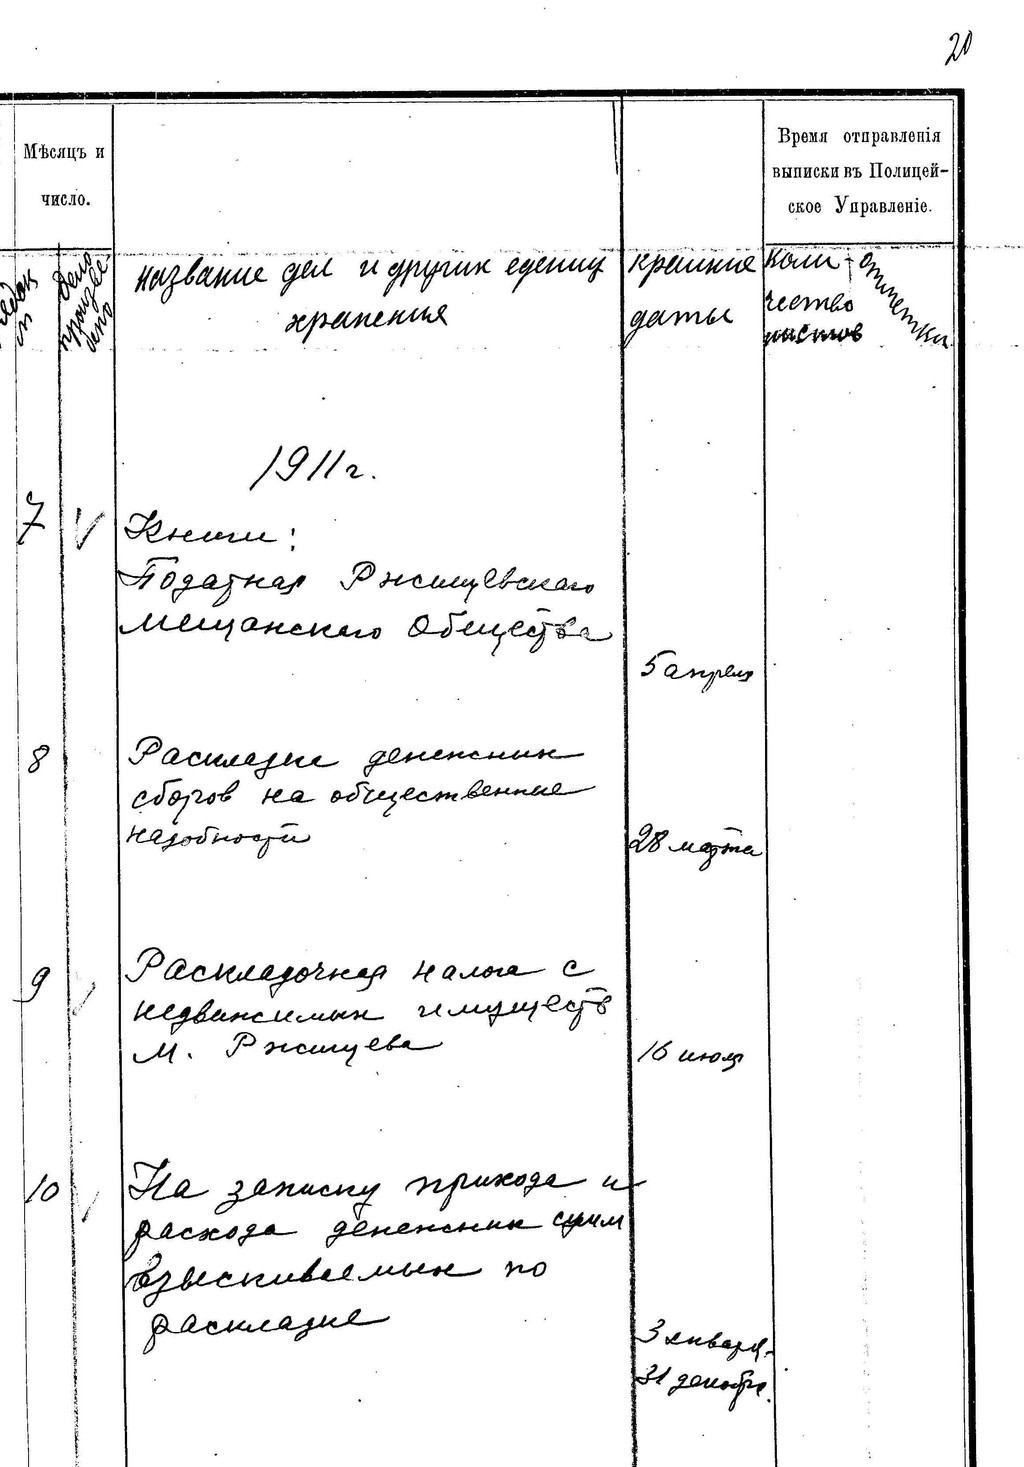 20
Мѣсяцъ и
число.
Время отправленія
выписки въ Полицей-
ское Управленіе.
дело
произве-
дено
название дел и других единиц
хранения
крайние
даты
коли-
чество
листов
отметки
1911 г.
7 V Книги:
Податная Ржищевского
Мещанского Общества
5 апреля
8 Раскладке денежных
сборов на общественные
надобности
28 марта
9 Раскладочная налога с
недвижимых имуществ
М. Ржищева
16 июля
10 На записку прихода и
расхода денежных сумм
взыскиваемых по
раскладке
3 января-
31 декабря.